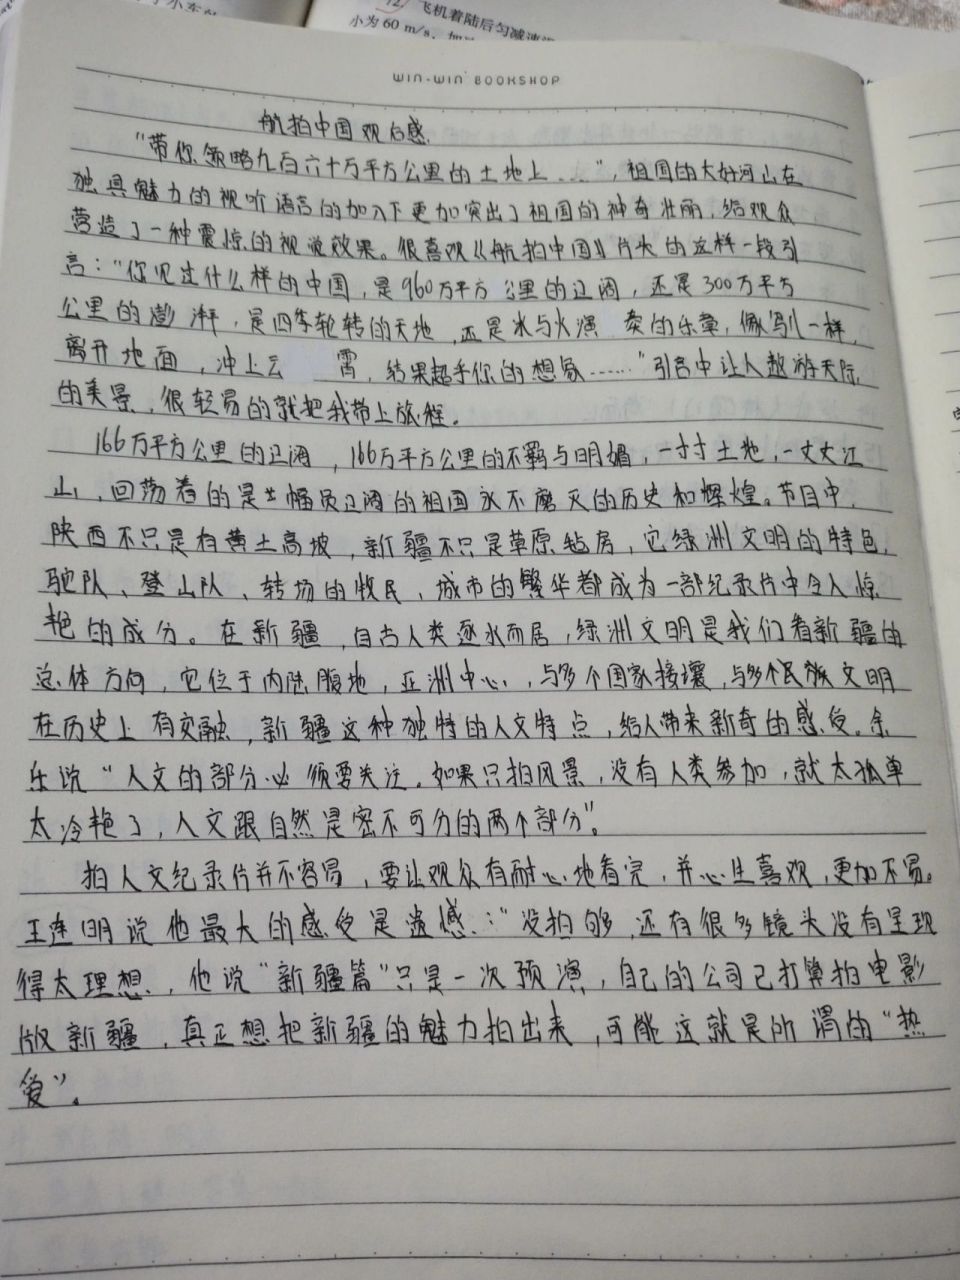 飞机着陆后匀减速
小为60 m/s,
WIN-WIN BOOKSHOP
航拍中国观后感
“带你领略九百六十万平方公里的土地上……”,祖国的大好河山在
独具魅力的视听语言的加入下更加突出了祖国的神奇壮丽,给观众
营造了一种震惊的视觉效果。很喜欢《航拍中国》片头的这样一段引
言:“你见过什么样的中国,是960万平方公里的辽阔,还是300万平方
公里的澎湃,是四季轮转的天地,还是冰与火演奏的乐章,像鸟儿一样,
离开地面,冲上云霄,结果超乎你的想象……”引言中让人遨游天际
的美景,很轻易的就把我带上旅程。
166万平方公里的辽阔,166万平方公里的不羁与明媚,一寸寸土地,一丈丈江
山,回荡着的是幅员辽阔的祖国永不磨灭的历史和辉煌。节目中,
陕西不只是有黄土高坡,新疆不只是草原毡房,它绿洲文明的特色,
驼队、登山队、转场的牧民、城市的繁华都成为一部纪录片中令人惊
艳的成分。在新疆,自古人类逐水而居,绿洲文明是我们看新疆的
总体方向,它位于内陆腹地,亚洲中心,与多个国家接壤,与多个民族文明
在历史上有交融,新疆这种独特的人文特点,给人带来新奇的感受。余
乐说“人文的部分必须要关注。如果只拍风景,没有人类参加,就太孤单
太冷艳了,人文跟自然是密不可分的两个部分”。
拍人文纪录片并不容易,要让观众有耐心地看完,并心生喜欢,更加不易。
王连明说他最大的感受是遗憾:“没拍够,还有很多镜头没有呈现
得太理想,他说“新疆篇”只是一次预演,自己的公司已打算拍电影
版新疆,真正想把新疆的魅力拍出来,可能这就是所谓的“热
爱”。